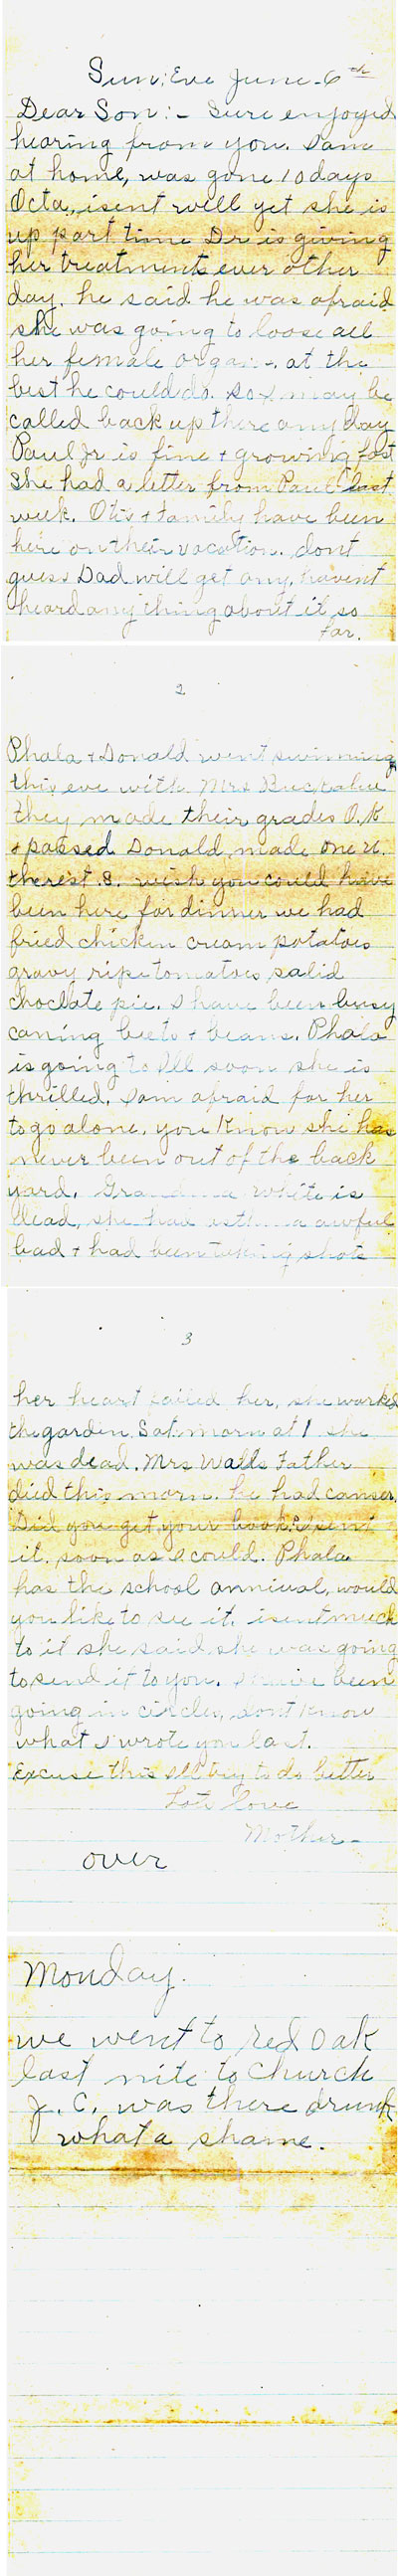 Sun; Eve June - 6th
Dear Son: - Sure enjoyed
hearing from you. I am
at home, was gone 10 days
Octa, isent well yet she is
up part time Dr is giving
her treatments ever other
day. he said he was afraid
she was going to loose all
her female organs. at the
best he could do. so I may be
called back up there any day
Paul Jr is fine + growing fast
She had a letter from Paul last
week. Otis + family have been
here on their vacation. dont
guess Dad will get any, havent
heard any thing about it so
far.
2
Phala + Donald went swimming
this eve with Mrs
they made their grades O.K
+ passed Donald made one U.
therest. S. wish you could have
been here for dinner we had
fried chicken cream potatoes
gravy ripe tomatoes salid
choclate pie. I have been busy
caning beets + beans. Phala
is going to Ill soon she is
thrilled. I am afraid for her
to go alone. you know she has
never been out of the back
yard. Grandma white is
dead, she had asthma awful
bad + had been taking shots
3
her heart failed her, she worked
the garden Sat morn at 1 she
was dead. Mrs Walls Father
died this morn. he had canser.
Did you get your book? I sent
it. soon as I could. Phala
has the school anniual, would
you like to see it. isent much
to it she said she was going
to send it to you. I have been
going in circles, dont know
what I wrote you last.
Excuse this Ill try to do better
Lots love
Mother -
over
Monday.
we went to red oak
last nite to church
J. C. was there drunk
what a shame.